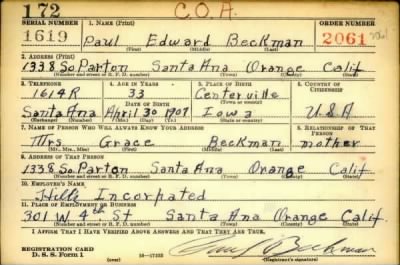 172 C.O.A.
SERIAL NUMBER 1. NAME (Print) ORDER NUMBER
1619 Paul Edward Beckman 2061
(First) (Middle) (Last)
2. ADDRESS (Print)
1338 So Parton Santa Ana Orange Calif
(Number and street or R. F. D. number) (Town) (County) (State)
3. TELEPHONE 4. AGE IN YEARS 5. PLACE OF BIRTH 6. COUNTRY OF CITIZENSHIP
1614R 33 Centerville
DATE OF BIRTH (Town or county)
Santa Ana April 30 1907 Iowa U.S.A
(Exchange) (Number) (Mo.) (Day) (Yr.) (State or country)
7. NAME OF PERSON WHO WILL ALWAYS KNOW YOUR ADDRESS 8. RELATIONSHIP OF THAT PERSON
Mrs Grace Beckman mother
(Mr., Mrs., Miss) (First) (Middle) (Last)
9. ADDRESS OF THAT PERSON
1338 So Parton Santa Ana Orange Calif.
(Number and street or R. F. D. number) (Town) (County) (State)
10. EMPLOYER'S NAME
Incorpated
11. PLACE OF EMPLOYMENT OR BUSINESS
301 W 4th St Santa Ana Orange Calif.
(Number and street or R. F. D. number) (Town) (County) (State)
I AFFIRM THAT I HAVE VERIFIED ABOVE ANSWERS AND THAT THEY ARE TRUE.
Paul E Beckman
REGISTRATION CARD
D. S. S. Form 1 (over) 16—17105 (Registrant's signature)